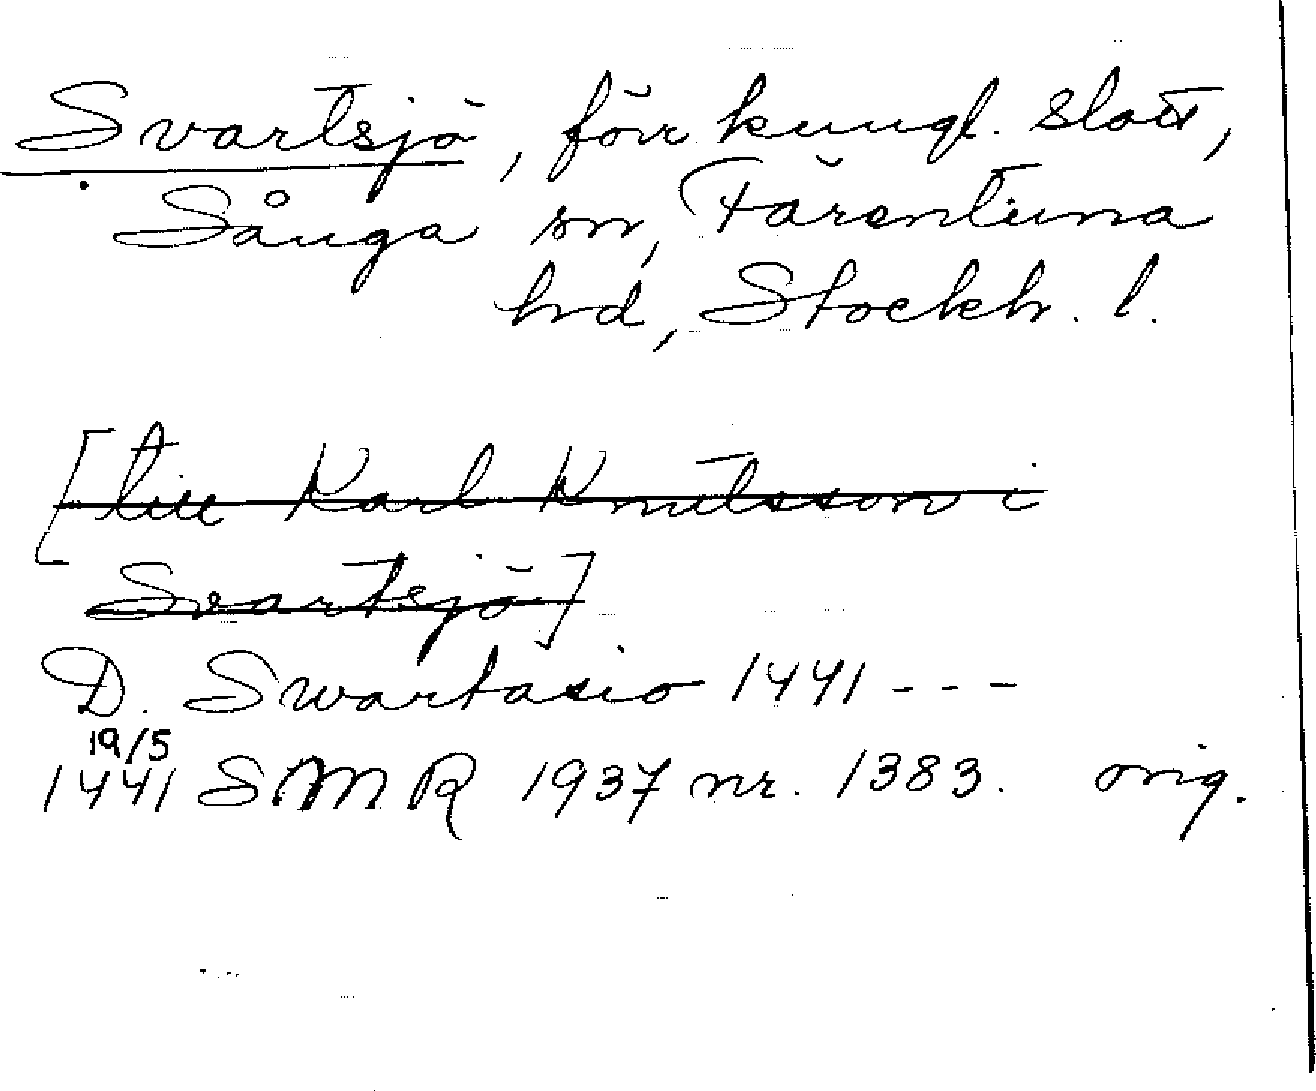 Svartsjö, förr kungl. slott,
Sånga sn, Färentuna
hrd, Stockh. l.
[till Karl Knutsson i
Svartsjö]
D. Swartasio 1441 ---
19/5
1441 SMR 1937 nr. 1383. orig.